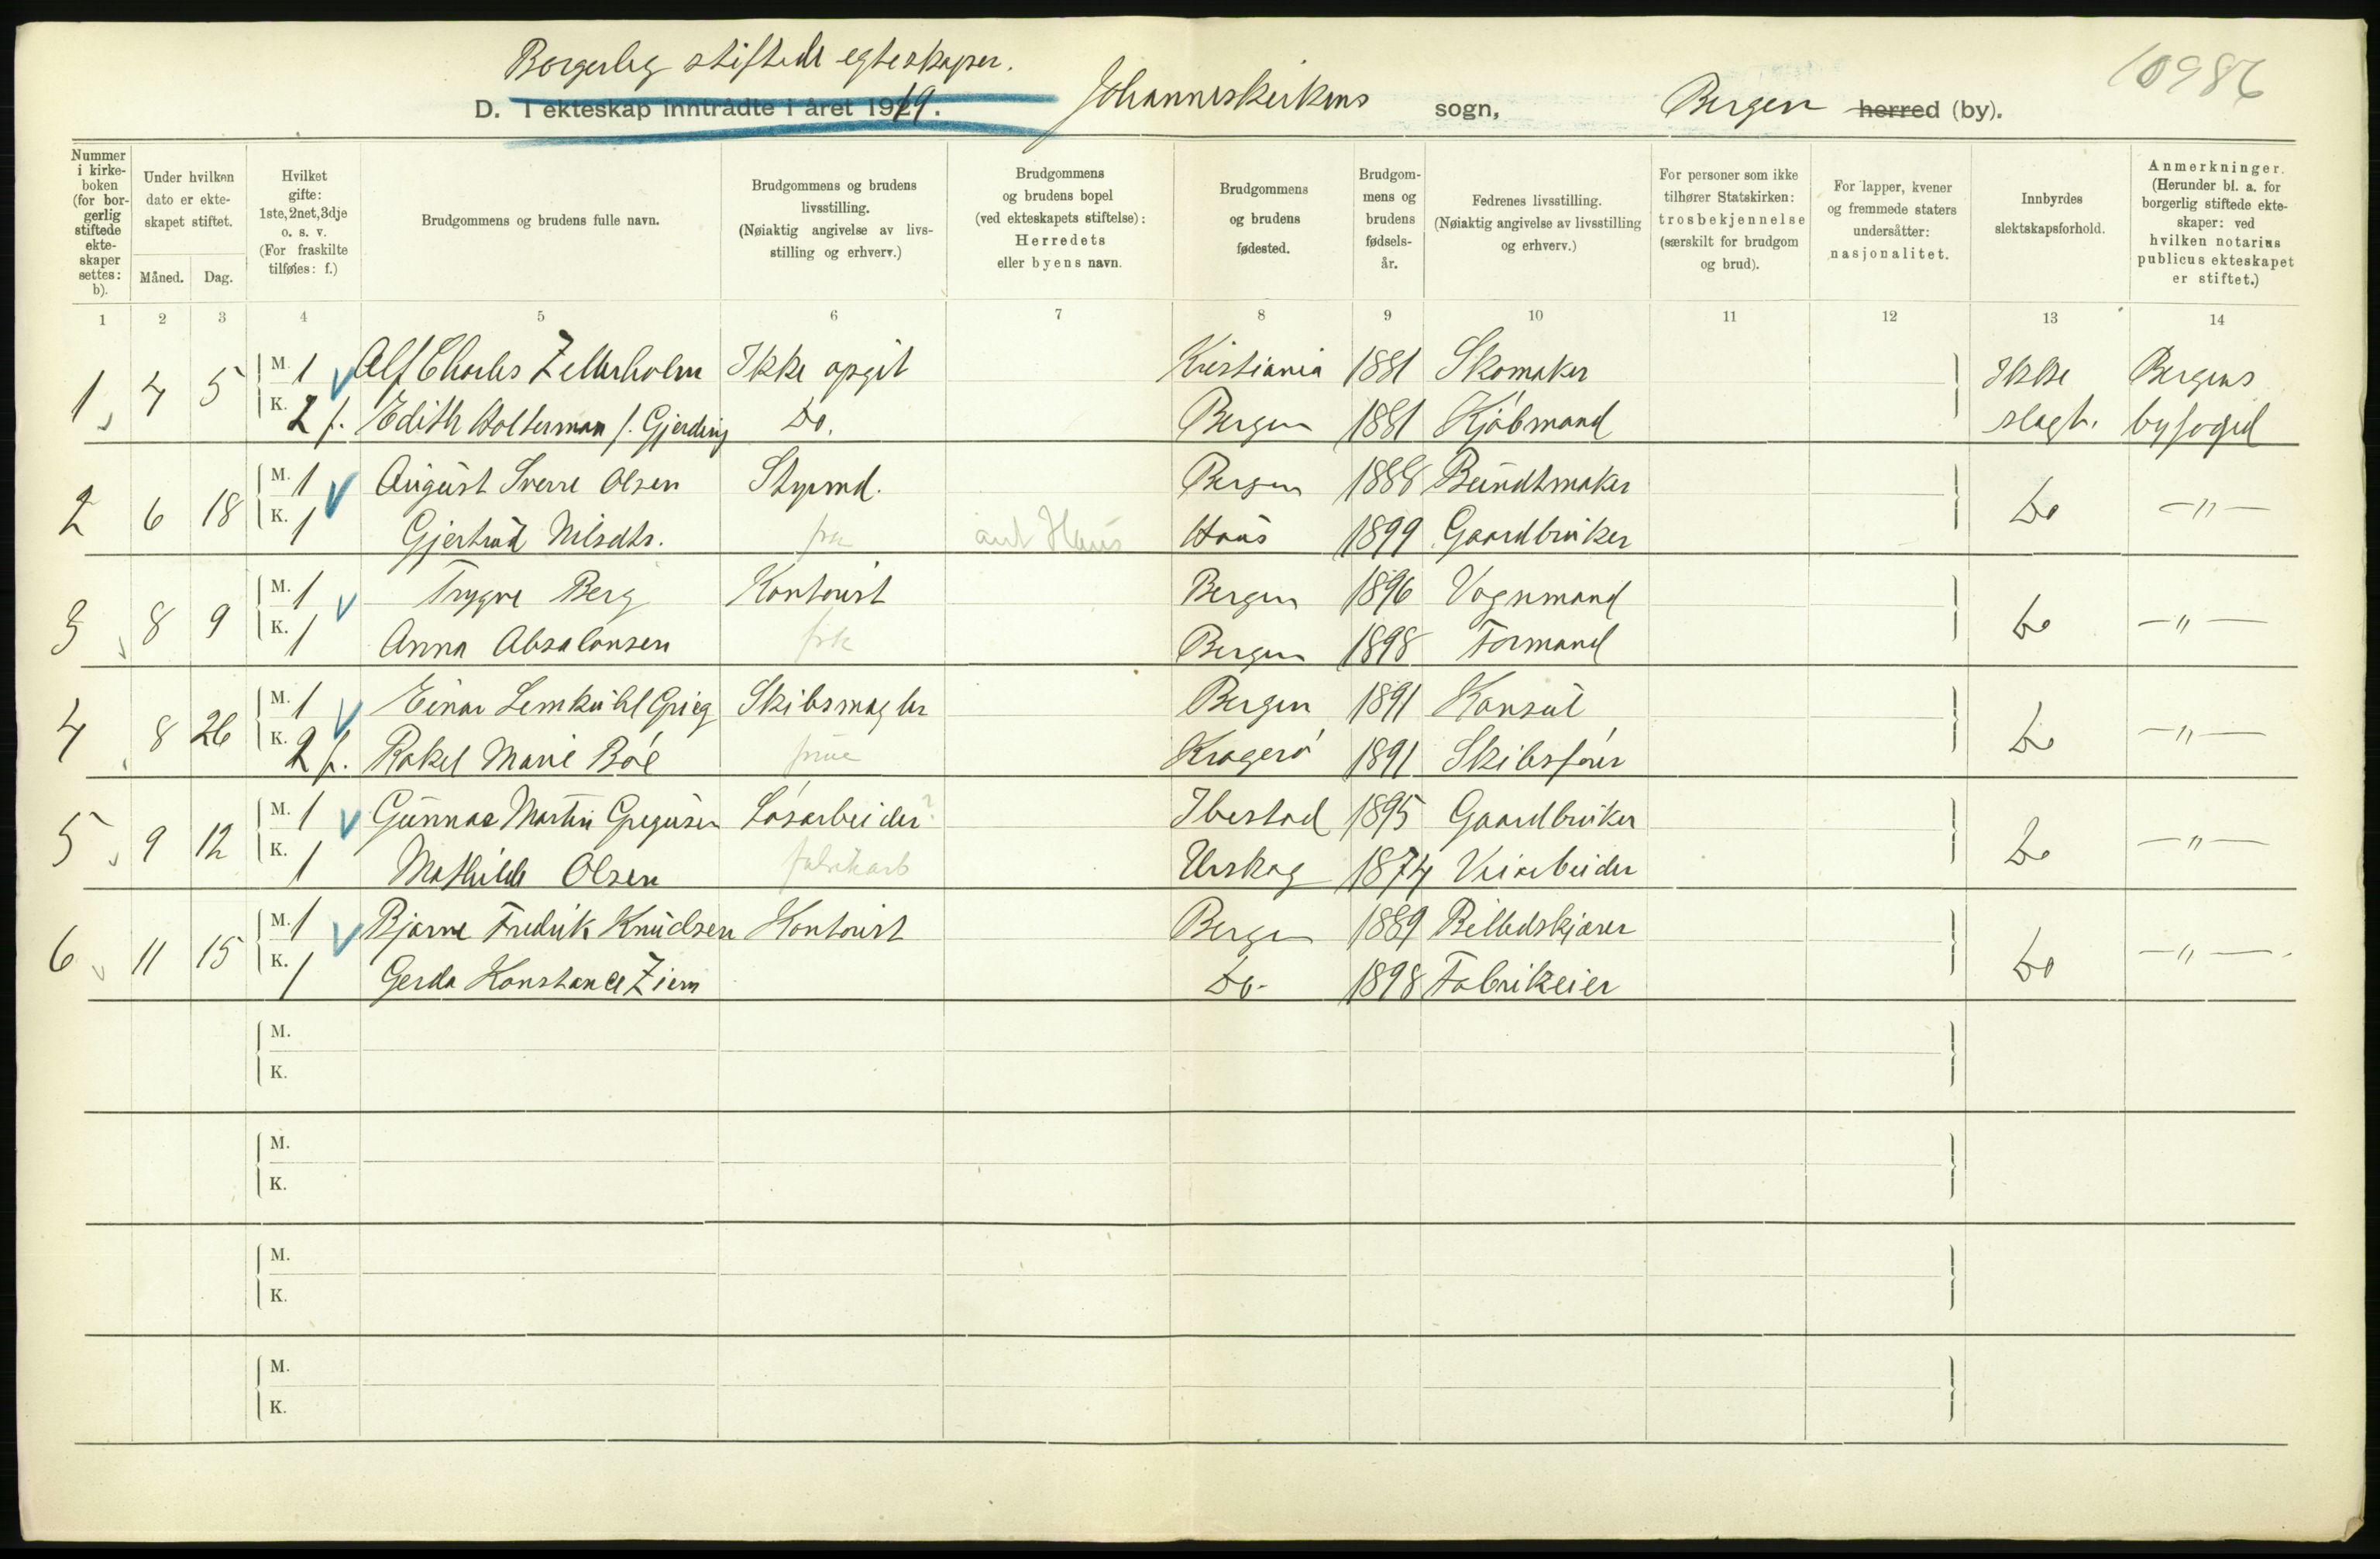 10986
Borgerlig stiftede egteskaper.
D. I ekteskap inntrådte i året 1919. Johanneskirkens sogn, Bergen herred (by).
Nummer i kirkeboken (for borgerlig stiftede ekteskaper settes: b).
Under hvilken dato er ekteskapet stiftet.
Måned. Dag.
Hvilket gifte: 1ste, 2net, 3dje o. s. v. (For fraskilte tilføies: f.)
Brudgommens og brudens fulle navn.
Brudgommens og brudens livsstilling. (Nøiaktig angivelse av livsstilling og erhverv.)
Brudgommens og brudens bopel (ved ekteskapets stiftelse): Herredets eller byens navn.
Brudgommens og brudens fødested.
Brudgommens og brudens fødselsår.
Fedrenes livsstilling. (Nøiaktig angivelse av livsstilling og erhverv.)
For personer som ikke tilhører Statskirken: trosbekjennelse (særskilt for brudgom og brud).
For lapper, kvener og fremmede staters undersåtter: nasjonalitet.
Innbyrdes slektskapsforhold.
Anmerkninger. (Herunder bl. a. for borgerlig stiftede ekteskaper: ved hvilken notarius publicus ekteskapet er stiftet.)
1 2 3 4 5 6 7 8 9 10 11 12 13 14
1 4 5 M. 1 Alf Charles Zetterholm Ikke opgit Kristiania 1881 Skomaker Ikke Bergens
K. 2 f. Edith Holterman f. Gjerding Do. Bergen 1881 Kjøbmand slegt. byfoged
2 6 18 M. 1 August Sverre Olsen Styrmd. Bergen 1888 Bundtmaker Do —"—
K. 1 Gjertrud Nilsdtr. frk ant Haus Haus 1899 Gaardbruker
3 8 9 M. 1 Trygve Berg Kontorist Bergen 1896 Vognmand Do —"—
K. 1 Anna Absalonsen frk Bergen 1898 Formand
4 8 26 M. 1 Einar Lemkuhl Grieg Skibsmægler Bergen 1891 Konsul Do —"—
K. 2 f. Rakel Marie Böe frue Kragerö 1891 Skibsfører
5 9 12 M. 1 Gunnar Martin Gregusen Løsarbeider? Ibestad 1895 Gaardbruker Do —"—
K. 1 Mathilde Olsen fabrikarb Urskog 1874 Veiarbeider
6 11 15 M. 1 Bjarne Fredrik Knudsen Kontorist Bergen 1889 Billedskjærer Do —"—
K. 1 Gerda Konstance Ziem Do- 1898 Fabrikeier
M.
K.
M.
K.
M.
K.
M.
K.